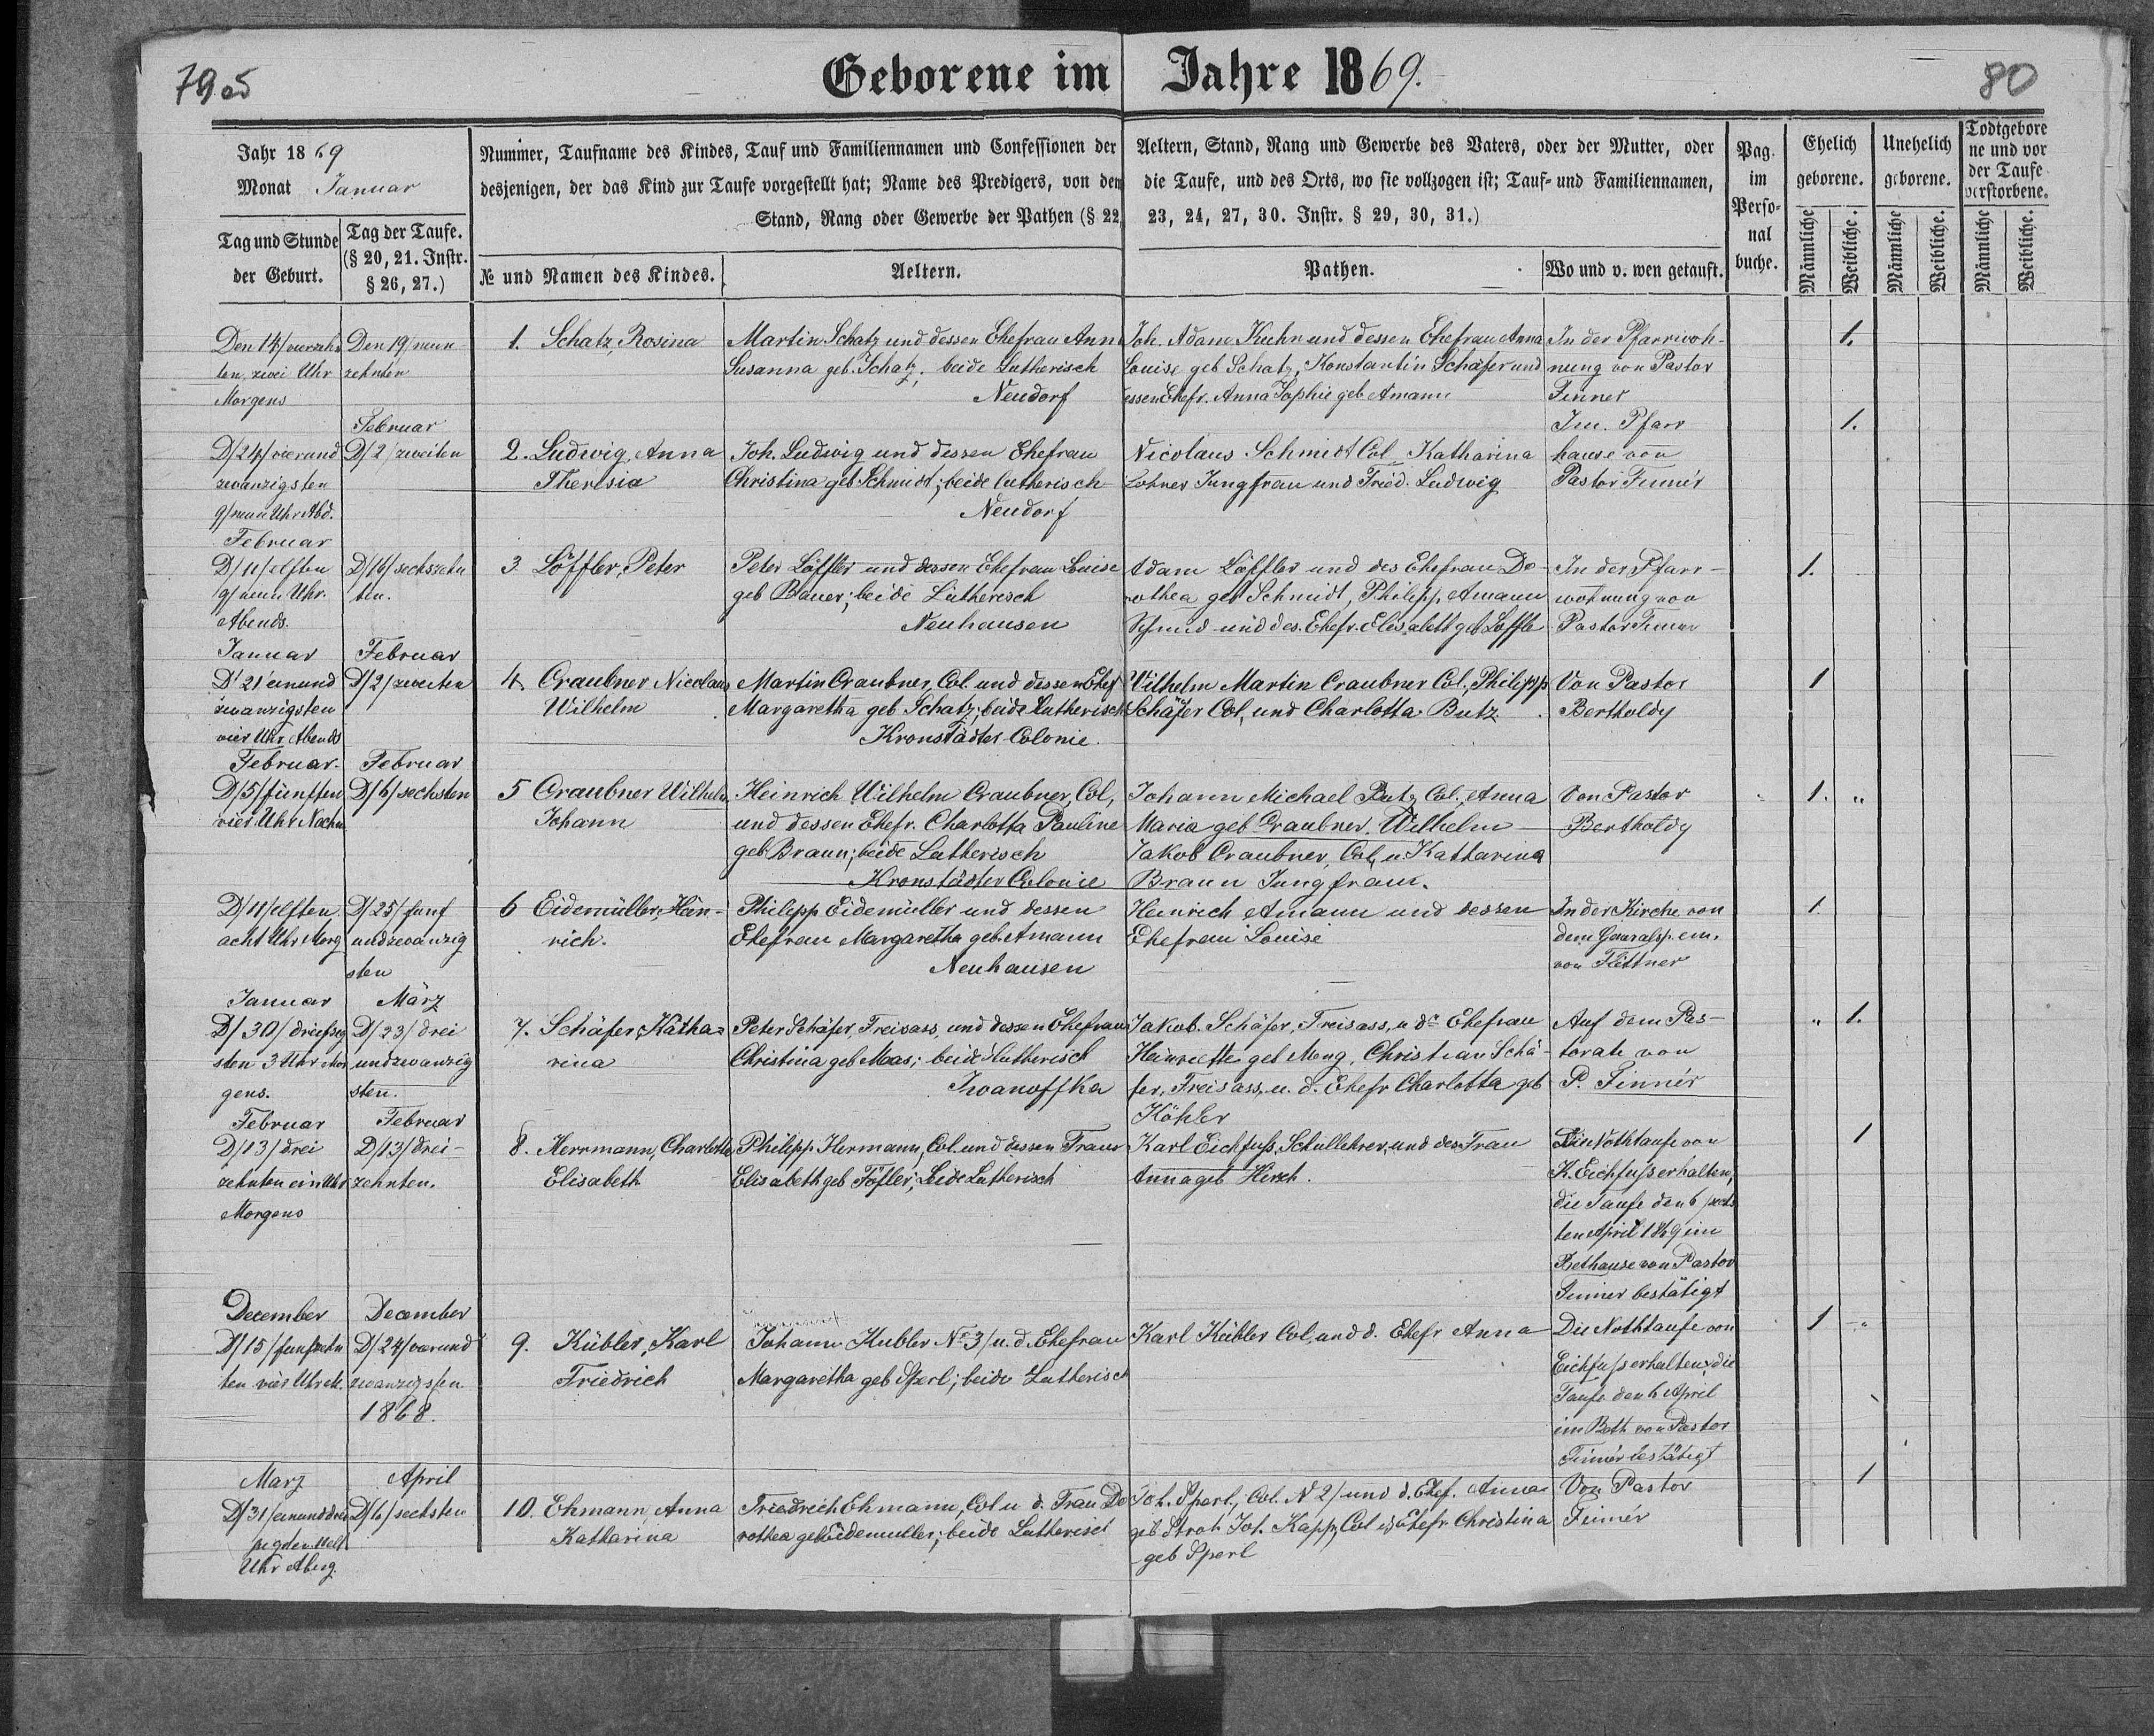 79
Geborene im Jahre 1869.
80
Jahr 1869
Monat Januar
Tag und Stunde der Geburt.
Tag der Taufe. (§ 20, 21. Instr. § 26, 27.)
Nummer, Taufname des Kindes, Tauf und Familiennamen und Confessionen der Aeltern, Stand, Rang und Gewerbe des Vaters, oder der Mutter, oder
desjenigen, der das Kind zur Taufe vorgestellt hat; Name des Predigers, von dem die Taufe, und des Orts, wo sie vollzogen ist; Tauf- und Familiennamen,
Stand, Rang oder Gewerbe der Pathen (§ 22, 23, 24, 27, 30. Instr. § 29, 30, 31.)
№ und Namen des Kindes.
Aeltern.
Pathen.
Wo und v. wen getauft.
Pag. im Perso- nal buche.
Ehelich geborene.
Unehelich geborene.
Todtgebore ne und vor der Taufe verstorbene.
Männliche Weibliche. Männliche Weibliche. Männliche Weibliche.
Den 14/vierzehn
ten zwei Uhr
Morgens
Den 19/neun
zehnten
1. Schatz, Rosina
Martin Schatz und dessen Ehefrau Anna
Susanna geb. Schatz; beide Lutherisch
Neudorf
Joh. Adam Kuhn und dessen Ehefrau Anna
Louise geb Schatz, Konstantin Schäfer und
essen Ehefr. Anna Sophie geb Amann
In der Pfarrwoh-
nung von Pastor
Finner
1.
Februar
D/24/vierund
zwanzigsten
9/neun Uhr Abd.
D/2/zweiten
2. Ludwig, Anna
Theresia
Joh. Ludwig und dessen Ehefrau
Christina geb Schmidt; beide lutherisch
Neudorf
Nicolaus Schmidt Col. Katharina
Lohrer Jungfrau und Fried. Ludwig
Im Pfarr
hause von
Pastor Finnér
1.
Februar
D/11/elften
9/neun Uhr.
Abends.
D/16/sechszehn
ten.
3. Löffler, Peter
Peter Löffler und dessen Ehefrau Louise
geb Bauer; beide Lutherisch
Neuhausen
Adam Löffler und des Ehefrau Do-
rothea geb Schmidt, Philipp Amann
Schmid und des. Ehefr. Elisabeth geb Löffle
In der Pfarr-
wohnung von
Pastor Finner
1.
Januar
Februar
D/21/einund
zwanzigsten
vier Uhr Abends
D/2/zweiten
4. Graubner Nicolaus
Wilhelm
Martin Graubner, Col. und dessen Ehef
Margaretha geb Schatz; beide Lutherisch
Kronstädter Colonie.
Wilhelm Martin Graubner Col., Philipp
Schäfer Col, und Charlotta Butz.
Von Pastor
Bertholdy
1
Februar.
Februar
D/5/fünften
vier Uhr Nachm
D/6/sechsten
5 Graubner Wilhelm
Johann
Heinrich Wilhelm Graubner, Col,
und dessen Ehefr. Charlotta Pauline
geb. Braun; beide Lutherisch
Kronstädter Colonie
Johann Michael Butz, Col., Anna
Maria geb Graubner. Wilhelm
Jakob Graubner, Col, u. Katharina
Braun Jungfrau.
Von Pastor
Bertholdy
1. "
D/11/elften
acht Uhr Morg
D/25/fünf
undzwanzig
sten
6 Eidemüller, Hein-
rich.
Philipp Eidemüller und dessen
Ehefrau Margaretha geb. Amann
Neuhausen
Heinrich Amann und dessen
Ehefrau Louise
In der Kirche von
dem Generalsp. em.
von Flittner
1
Januar
März
D/30/dreißig
sten 3 Uhr Mor
gens.
D/23/drei
undzwanzig
sten.
7. Schäfer, Katha-
rina
Peter Schäfer, Freisass, und dessen Ehefrau
Christina geb Maas; beide Lutherisch
Iwanoffka
Jakob. Schäfer, Freisass, u ds Ehefrau
Heinriette geb Meng, Christian Schä-
fer, Freisass, u. d. Ehefr Charlotta geb
Köhler
Auf dem Pas-
torate von
P. Finnér
" 1.
Februar
Februar
D/13/drei
zehnten ein Uhr
Morgens
D/13/drei-
zehnten.
8. Herrmann, Charlotta
Elisabeth
Philipp Hermann, Col. und dessen Frau
Elisabeth gebFöller; beide Lutherisch
Karl Eichfuß, Schullehrer, und des Frau
Anna geb Hirsch.
Die Nothtaufe von
K. Eichfuß erhalten,
die Taufe den 6/sechs
ten April 1869 im
Bethause von Pastor
Finner bestätigt
1
December
December
D/15/funfzehn
ten vier Uhr
D/24/vierund
zwanzigsten
1868.
9. Kübler, Karl
Friedrich
Johann Kubler No 3/ u. d. Ehefrau
Margaretha geb Sperl; beide Lutherisch
Karl Kübler Col, und d. Ehefr Anna
Die Nothtaufe von
Eichfuß erhalten, die
Taufe den 6 April
im Beth von Pastor
Finnér bestätigt
1
März
April
D/31/einunddrei
ßigsten
Uhr
D/6/sechsten
10. Ehmann, Anna
Katharina
Friedrich Ehmann, Col u d. Frau Do
rothea geb Eidemuller; beide Lutherisch
Joh. Sperl, Col. N 2/ und d. Ehef. Anna
geb Stroh Joh. Kapp, Col u Ehefr Christina
geb Sperl
Von Pastor
Finnér
1